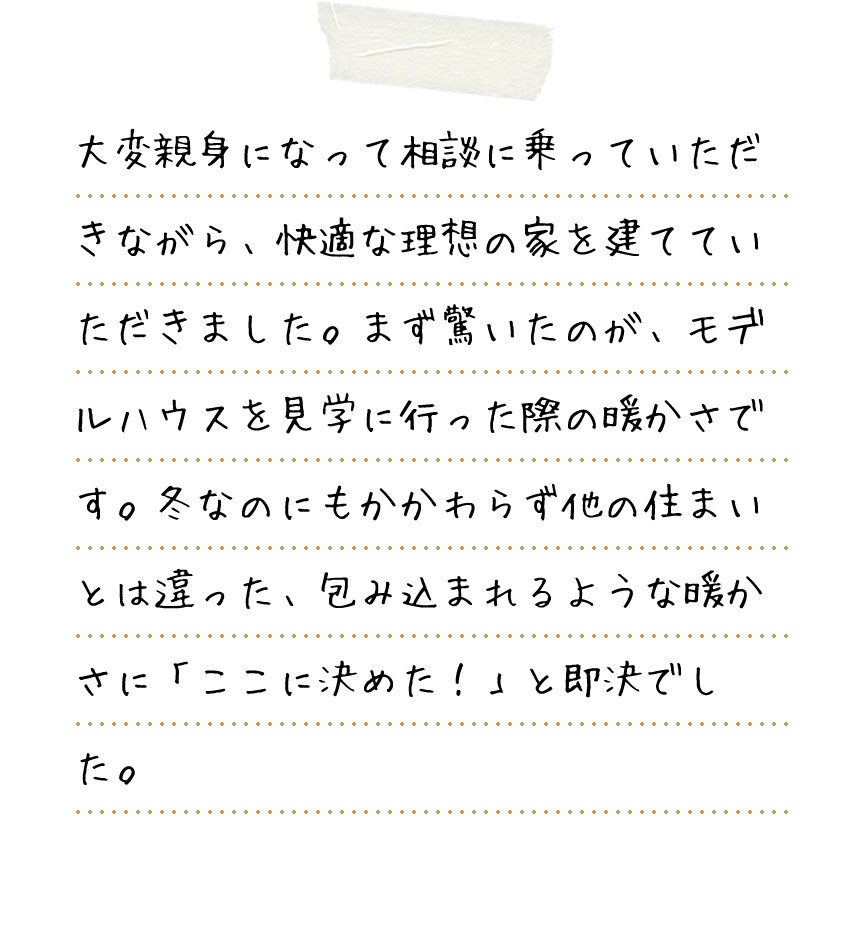 大変親身になって相談に乗っていただ
きながら、快適な理想の家を建ててい
ただきました。まず驚いたのが、モデ
ルハウスを見学に行った際の暖かさで
す。冬なのにもかかわらず他の住まい
とは違った、包み込まれるような暖か
さに「ここに決めた！」と即決でし
た。